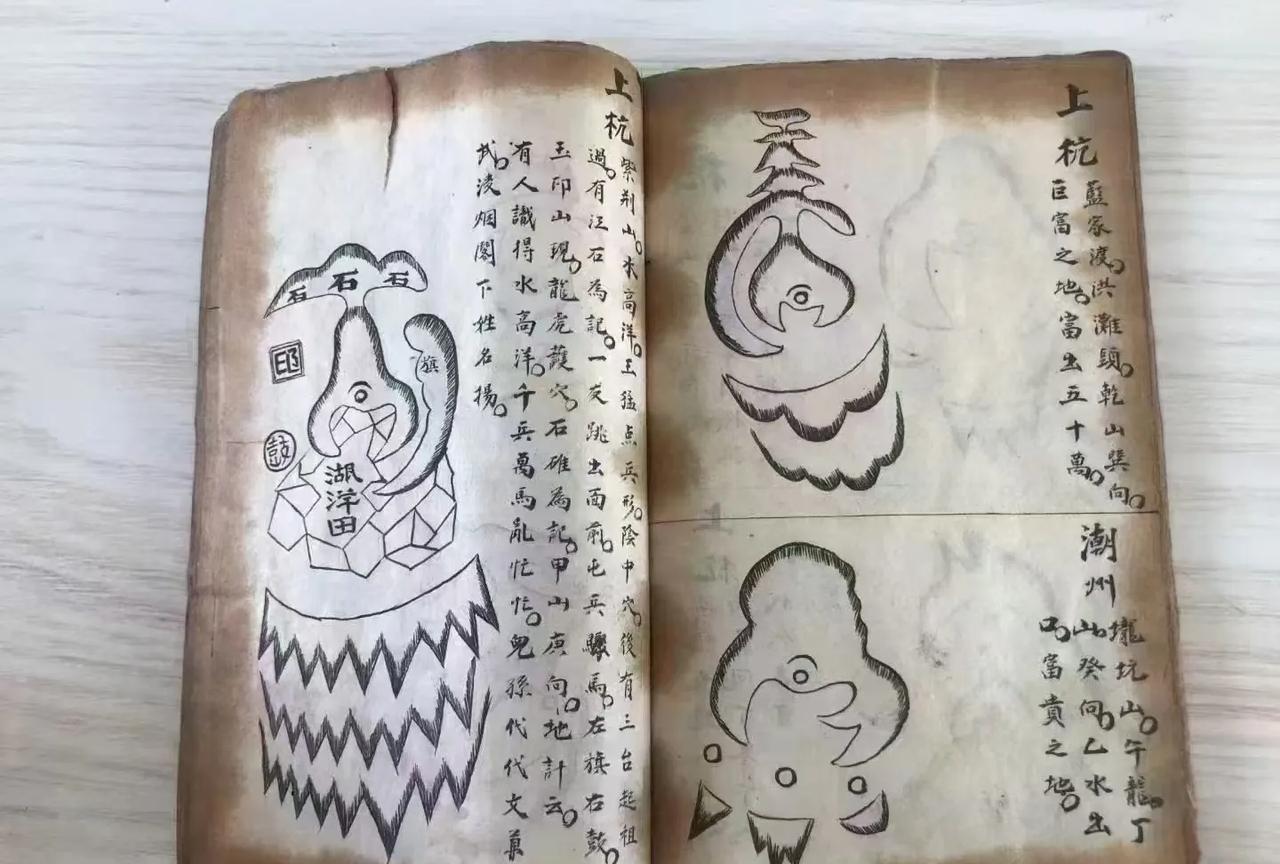 上杭
藍家渡。洪灘頭。乾山巽向。
巨富之地。富出五十萬。
潮州
壠坑山。午龍。丁
山。癸向。乙水出
口。富貴之地。
上杭
紫荆山。水高洋。王猛点兵形。陰中穴。後有三台起祖
過。有江石為記。一支跳出面前。屯兵驟馬。左旗右鼓。
玉印山現。龍虎護穴。石碓為記。甲山庚向。地計云。
有人識得水高洋。千兵萬馬亂忙忙。兒孫代代文兼
武。凌烟閣下姓名揚。
石 石 石
印
旗
鼓
湖洋田